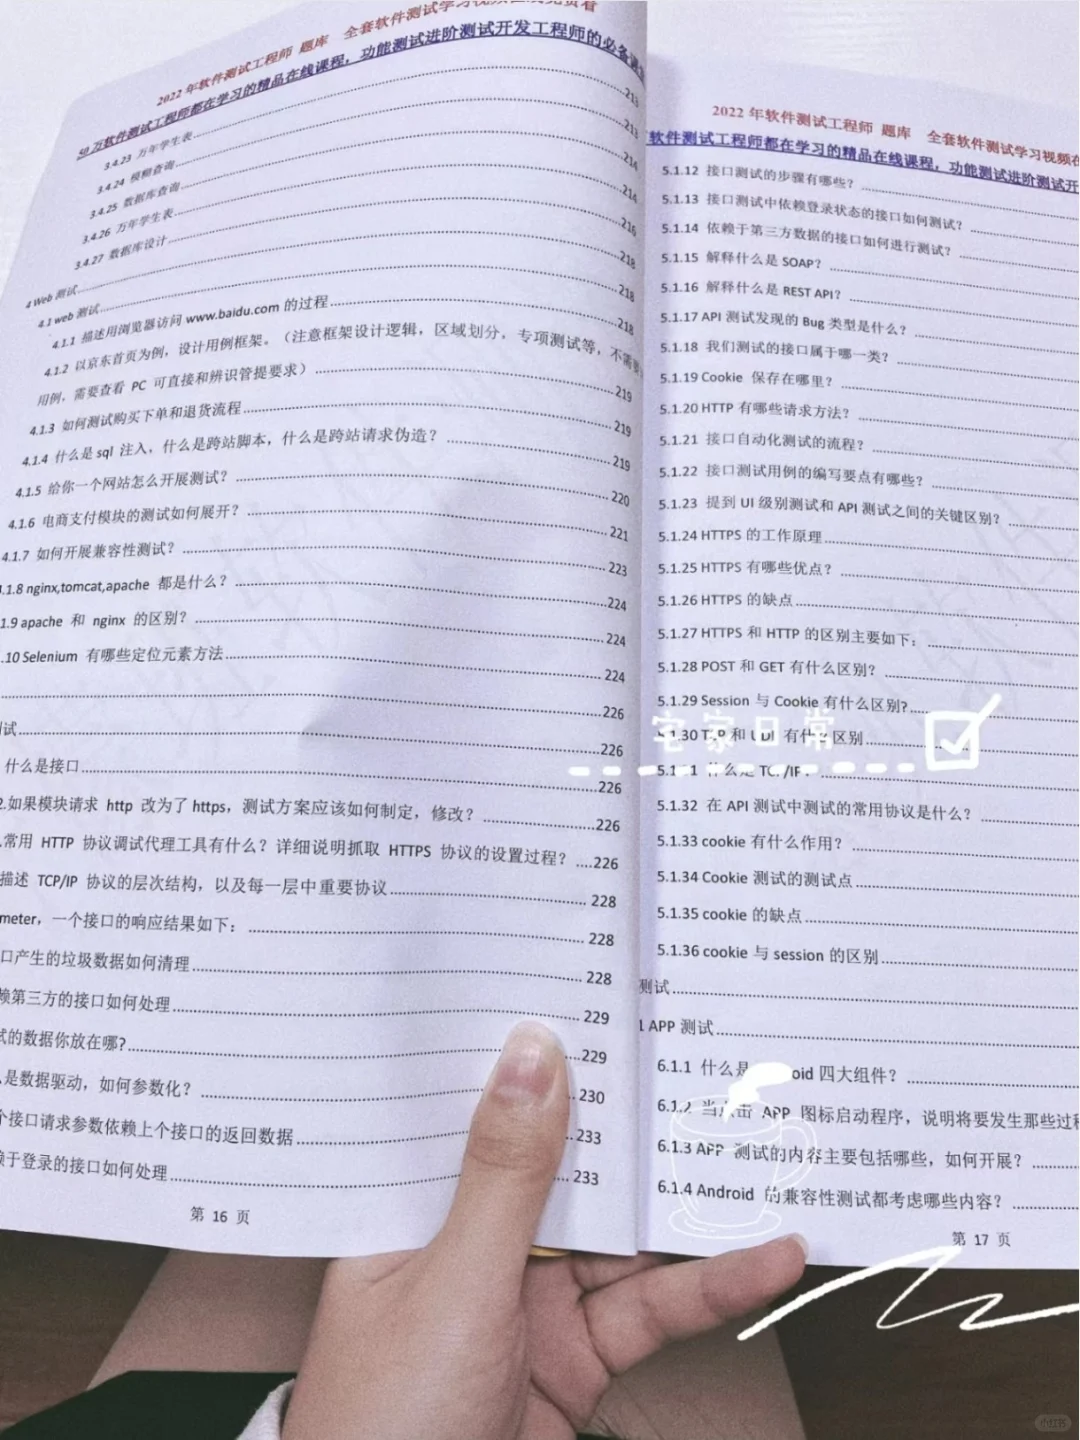 2022 年软件测试工程师 题库 全套软件测试学习视频在线免费看
50 万软件测试工程师都在学习的精品在线课程，功能测试进阶测试开发工程师的必备课
3.4.23 万年学生表 213
3.4.24 模糊查询 213
3.4.25 数据库查询 214
3.4.26 万年学生表 214
3.4.27 数据库设计 216
4 Web 测试 218
4.1 web 测试 218
4.1.1 描述用浏览器访问 www.baidu.com 的过程 218
4.1.2 以京东首页为例，设计用例框架。（注意框架设计逻辑，区域划分，专项测试等，不需要
用例，需要查看 PC 可直接和辨识管提要求） 219
4.1.3 如何测试购买下单和退货流程 219
4.1.4 什么是 sql 注入，什么是跨站脚本，什么是跨站请求伪造？ 219
4.1.5 给你一个网站怎么开展测试？ 220
4.1.6 电商支付模块的测试如何展开？ 221
4.1.7 如何开展兼容性测试？ 223
4.1.8 nginx,tomcat,apache 都是什么？ 224
1.9 apache 和 nginx 的区别？ 224
.10 Selenium 有哪些定位元素方法 224
226
试 226
什么是接口 226
2.如果模块请求 http 改为了 https，测试方案应该如何制定，修改？ 226
.常用 HTTP 协议调试代理工具有什么？详细说明抓取 HTTPS 协议的设置过程？ 226
描述 TCP/IP 协议的层次结构，以及每一层中重要协议 228
meter，一个接口的响应结果如下： 228
口产生的垃圾数据如何清理 228
赖第三方的接口如何处理 229
试的数据你放在哪? 229
是数据驱动，如何参数化？ 230
个接口请求参数依赖上个接口的返回数据 233
赖于登录的接口如何处理 233
第 16 页
2022 年软件测试工程师 题库 全套软件测试学习视频在
软件测试工程师都在学习的精品在线课程，功能测试进阶测试开
5.1.12 接口测试的步骤有哪些？
5.1.13 接口测试中依赖登录状态的接口如何测试？
5.1.14 依赖于第三方数据的接口如何进行测试？
5.1.15 解释什么是 SOAP？
5.1.16 解释什么是 REST API？
5.1.17 API 测试发现的 Bug 类型是什么？
5.1.18 我们测试的接口属于哪一类？
5.1.19 Cookie 保存在哪里？
5.1.20 HTTP 有哪些请求方法？
5.1.21 接口自动化测试的流程？
5.1.22 接口测试用例的编写要点有哪些？
5.1.23 提到 UI 级别测试和 API 测试之间的关键区别？
5.1.24 HTTPS 的工作原理
5.1.25 HTTPS 有哪些优点？
5.1.26 HTTPS 的缺点
5.1.27 HTTPS 和 HTTP 的区别主要如下：
5.1.28 POST 和 GET 有什么区别？
5.1.29 Session 与 Cookie 有什么区别?
宅家日常
5.1.30 TCP 和 UDP 有什么区别
什么是 TCP/IP？
5.1.32 在 API 测试中测试的常用协议是什么？
5.1.33 cookie 有什么作用？
5.1.34 Cookie 测试的测试点
5.1.35 cookie 的缺点
5.1.36 cookie 与 session 的区别
测试
1 APP 测试
6.1.1 什么是 oid 四大组件？
6.1.2 当点击 APP 图标启动程序，说明将要发生那些过程
6.1.3 APP 测试的内容主要包括哪些，如何开展？
6.1.4 Android 的兼容性测试都考虑哪些内容？
第 17 页
小红书